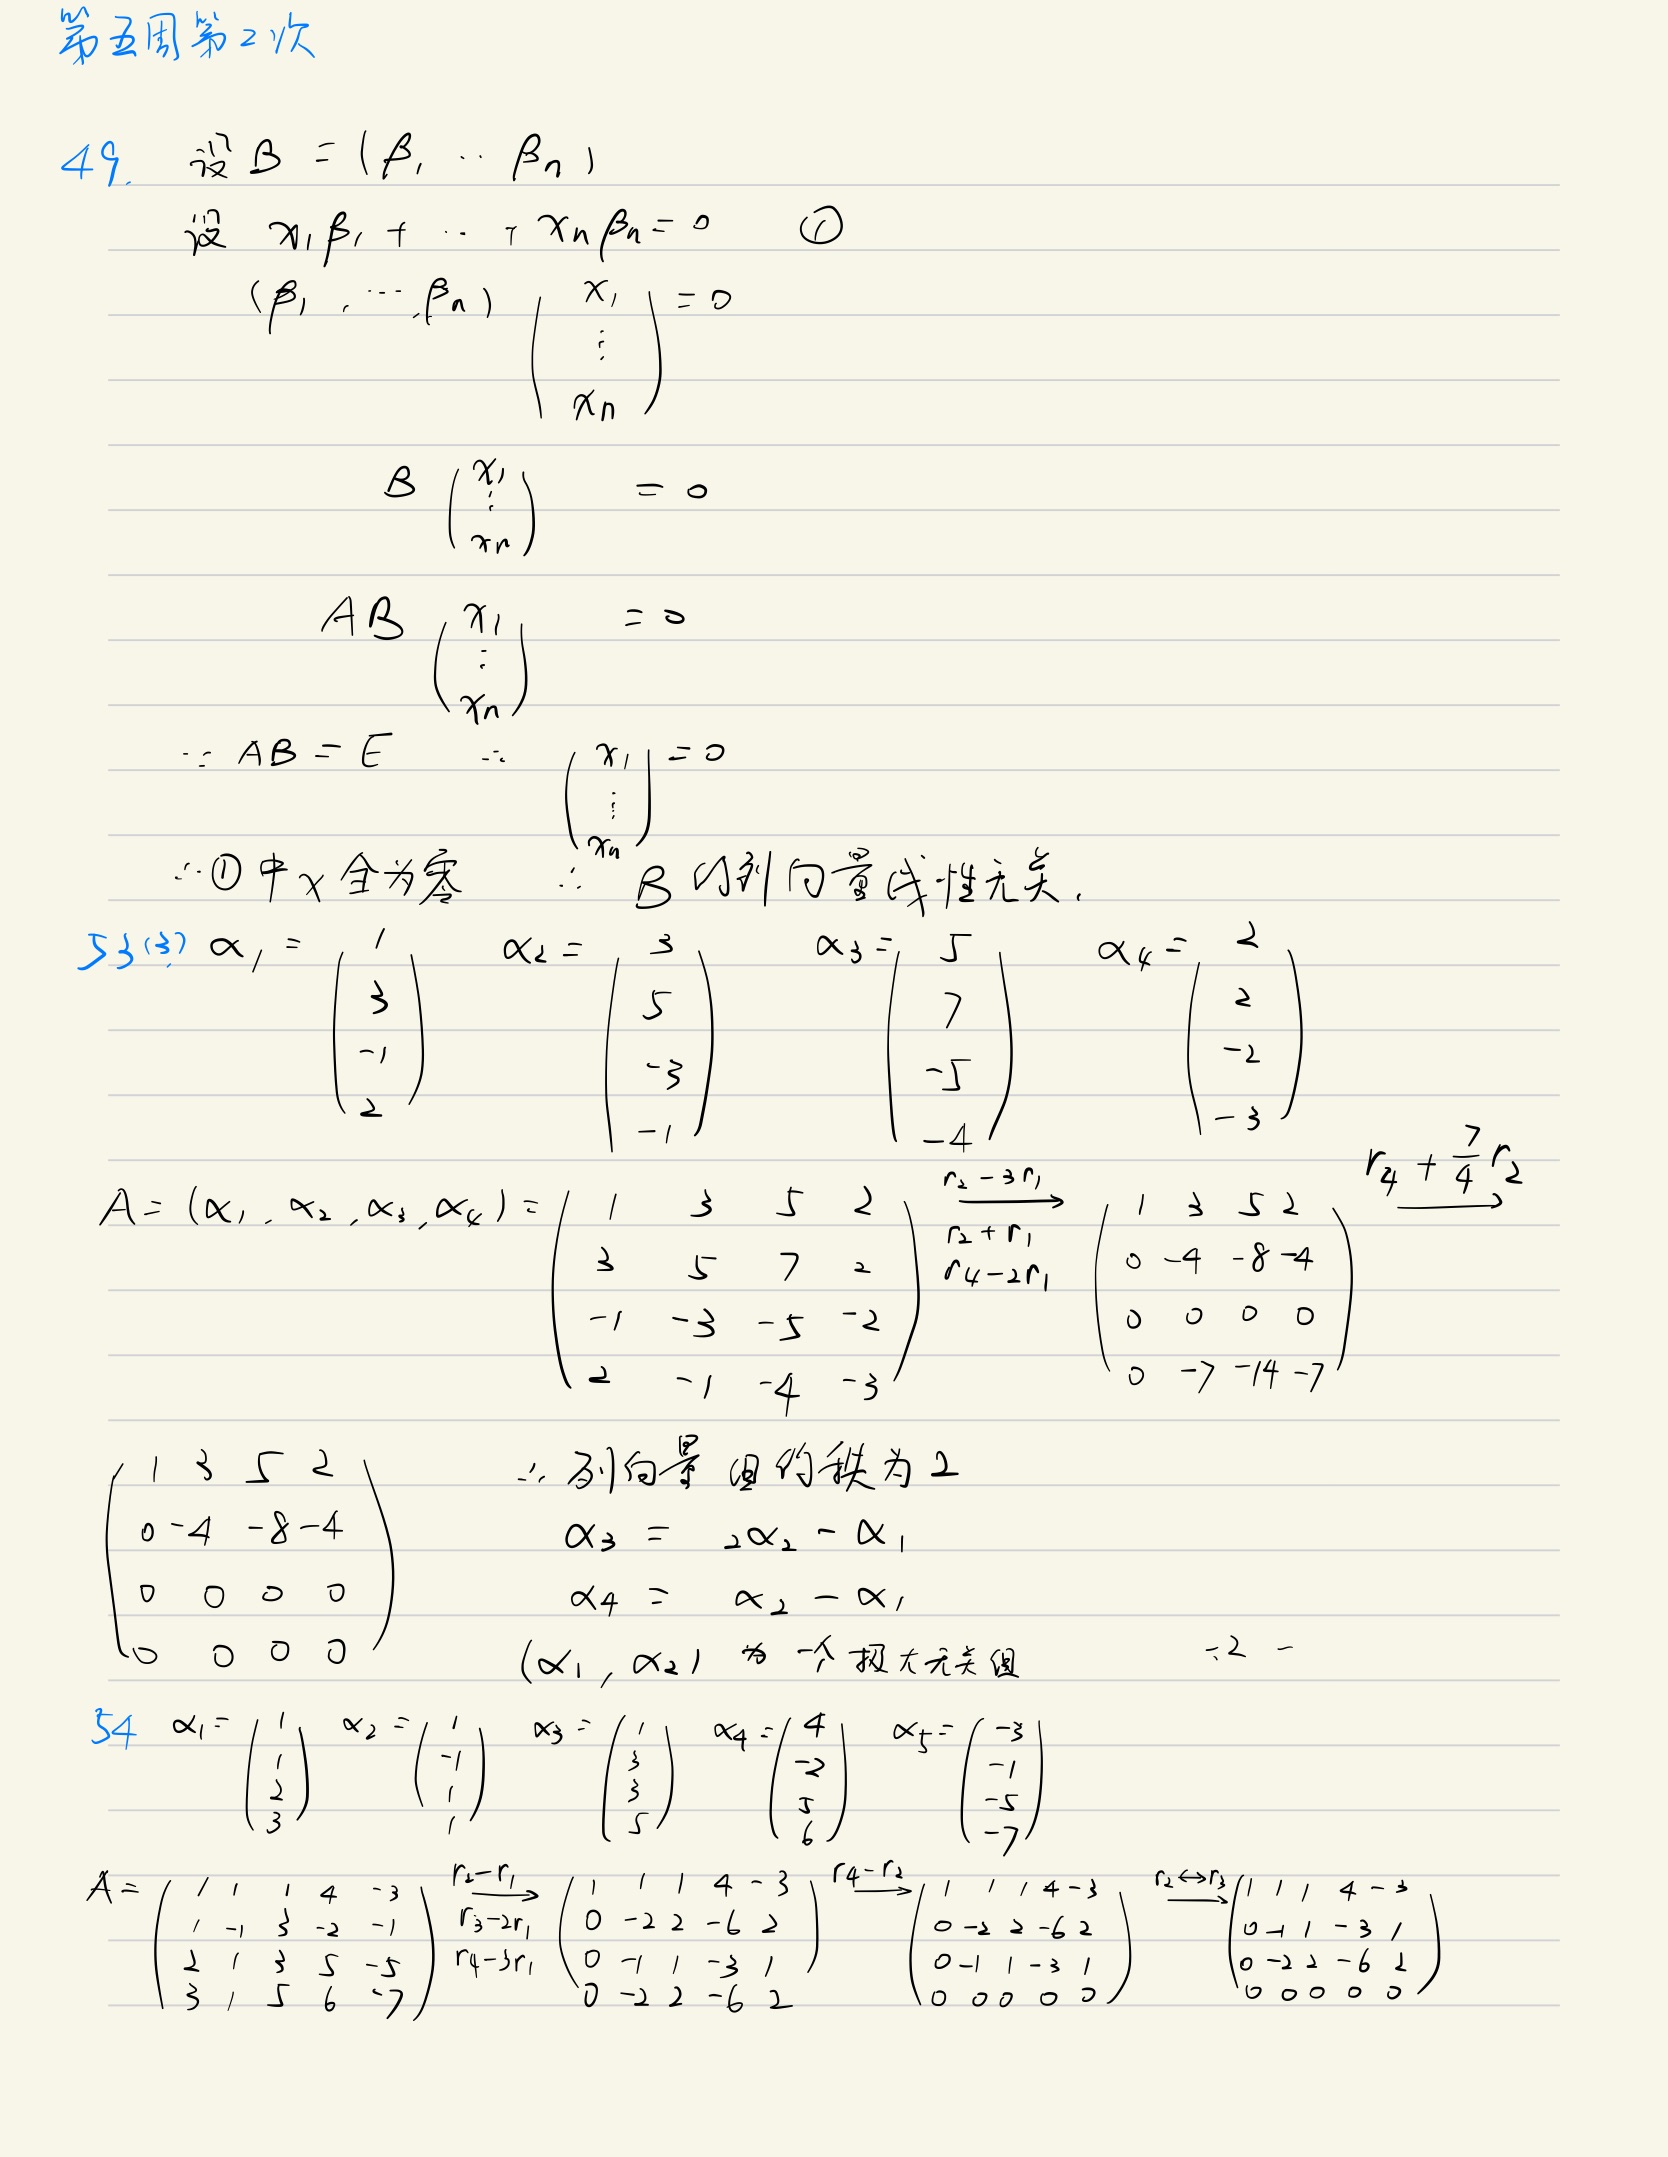 第五周第2次
49. 设 B = (β₁ ‥ βₙ)
设 x₁β₁ + ‥ + xₙβₙ = 0 ①
(β₁, ⋯, βₙ) (x₁ ⋮ xₙ) = 0
B (x₁ ⋮ xₙ) = 0
AB (x₁ ⋮ xₙ) = 0
∵ AB = E ∴ (x₁ ⋮ xₙ) = 0
∴ ①中x全为零 ∴ B的列向量线性无关.
53(3) α₁ = (1 3 -1 2) α₂ = (3 5 -3 -1) α₃ = (5 7 -5 -4) α₄ = (2 2 -2 -3)
A = (α₁, α₂, α₃, α₄) = (1 3 5 2
3 5 7 2
-1 -3 -5 -2
2 -1 -4 -3)
r₂-3r₁
r₂+r₁
r₄-2r₁
(1 3 5 2
0 -4 -8 -4
0 0 0 0
0 -7 -14 -7)
r₄ + 7/4 r₂
(1 3 5 2
0 -4 -8 -4
0 0 0 0
0 0 0 0)
∴ 列向量组的秩为2
α₃ = 2α₂ - α₁
α₄ = α₂ - α₁
(α₁, α₂) 为一个极大无关组
54 α₁ = (1 1 2 3) α₂ = (1 -1 1 1) α₃ = (1 3 3 5) α₄ = (4 -2 5 6) α₅ = (-3 -1 -5 -7)
A = (1 1 1 4 -3
1 -1 3 -2 -1
2 1 3 5 -5
3 1 5 6 -7)
r₂-r₁
r₃-2r₁
r₄-3r₁
(1 1 1 4 -3
0 -2 2 -6 2
0 -1 1 -3 1
0 -2 2 -6 2)
r₄-r₂
(1 1 1 4 -3
0 -2 2 -6 2
0 -1 1 -3 1
0 0 0 0 0)
r₂↔r₃
(1 1 1 4 -3
0 -1 1 -3 1
0 -2 2 -6 2
0 0 0 0 0)